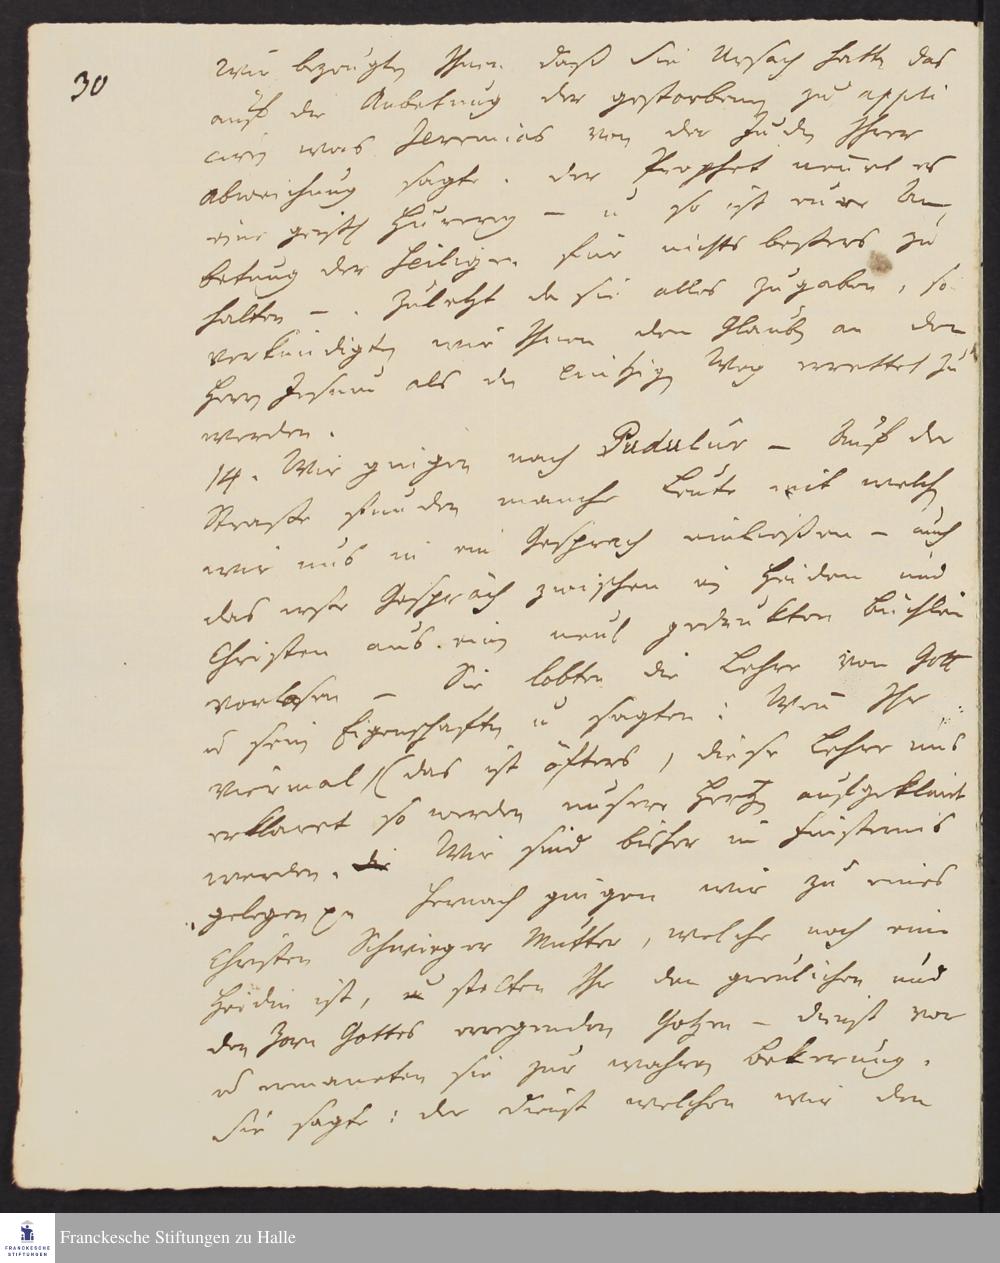 30
Wir bezeugten Ihnen daß Sie Ursach hatten das
auf die Anbetung der gestorbenen zu appli
ciren was Jeremias von der Juden Ihrer
Abweichung sagte. der Prophet nennet es
eine geistl Hurerey – u so ist eure An
betung der Heiligen für nichts bessers zu
halten –. zuletzt da sie alles zugaben, so
verkündigten wir Ihnen den Glauben an den
Herrn Jesum als den eintzigen Weg errettet zu
werden.
14. Wir gingen nach Pudulur – Auf der
Straße stunden manche Leute mit welchen
wir uns in ein Gesprech einließen – auch
das erste Gespräch zwischen ein Heiden und
Christen aus einem neul gedrukten Büchlein
vorlasen – Sie lobten die Lehre von Gott
u sein Eigenschaften u sagten: Wenn Ihr
viermal /(das ist öfters) diese Lehre uns
erkläret so werden unsere Hertzen aufgeklärt
werden. Wir sind bisher in Finsternis
gelegen pp Hernach gingen wir zu eines
Christen Schwieger Mutter, welche noch eine
Heidin ist, u stelten Ihr den greulichen und
den Zorn Gottes erregenden Götzen – dienst vor
u ermaneten sie zur wahren Bekerung.
Sie sagte: der Dienst welchen wir den
Franckesche Stiftungen zu Halle
FRANCKESCHE
STIFTUNGEN